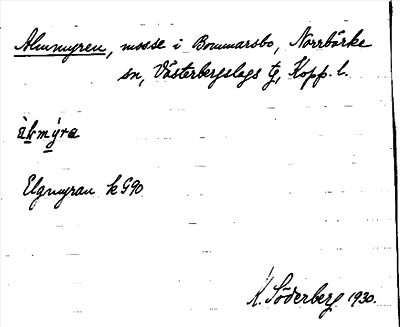 Älgmyren, mosse i Bommarsbo, Norrbärke
sn, Västerbergslags tg, Kopp. l.
Elgmyran k G90
K. Söderberg 1930.